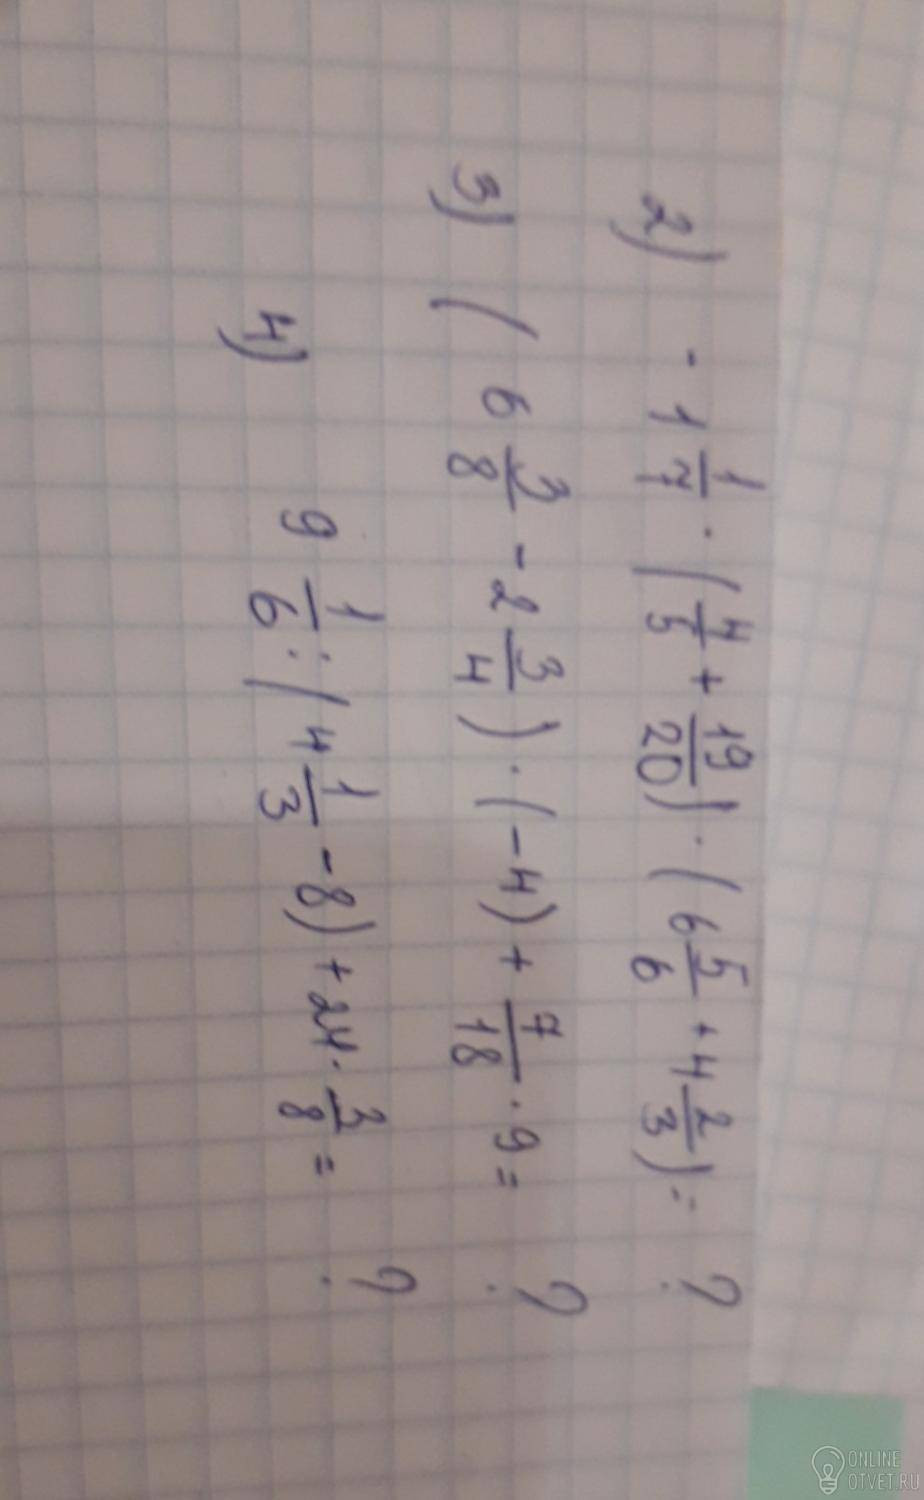 2) - 1 1/7 · (4/5 + 19/20) · (6 5/6 + 4 2/3) = ?
3) (6 3/8 - 2 3/4) · (-4) + 7/18 · 9 = ?
4) 9 1/6 : (4 1/3 - 8) + 24 · 3/8 = ?
ONLINE
OTVET.RU